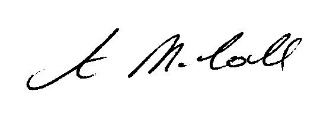 A McCall